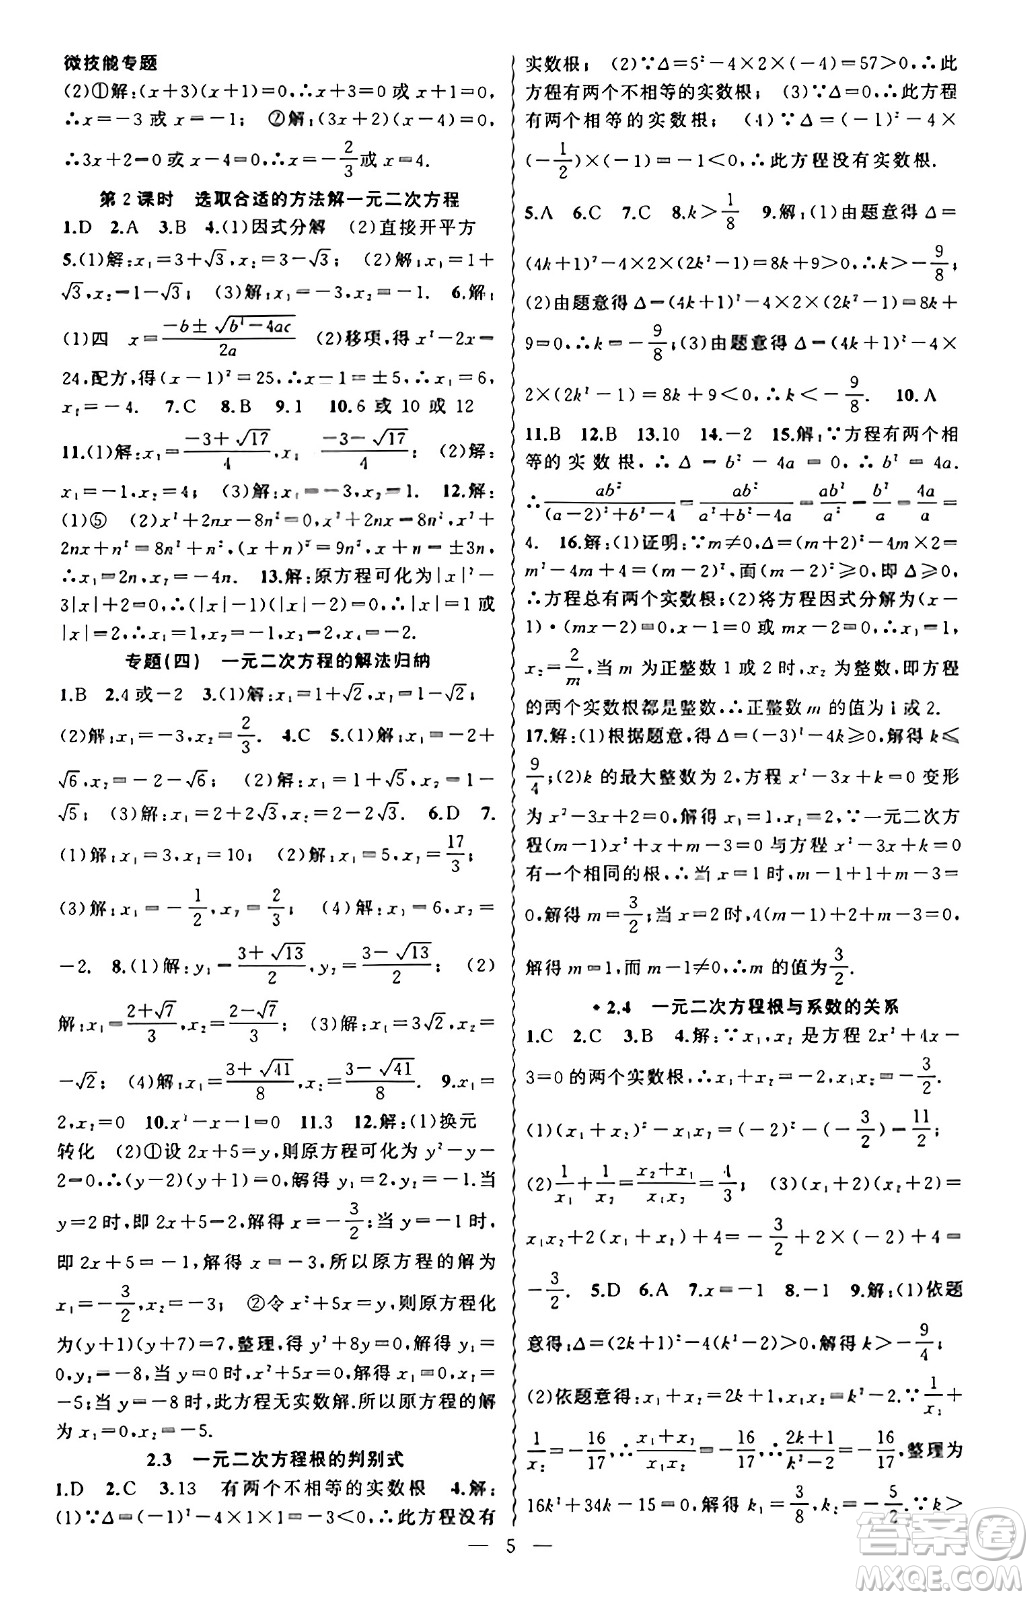 微技能专题
(2)①解:(x+3)(x+1)=0,∴x+3=0 或 x+1=0,
∴x=-3 或 x=-1; ②解:(3x+2)(x-4)=0,
∴3x+2=0 或 x-4=0,∴x=-2/3 或 x=4.
第 2 课时 选取合适的方法解一元二次方程
1.D 2.A 3.B 4.(1)因式分解 (2)直接开平方
5.(1)解:x₁=3+√3,x₂=3-√3; (2)解:x₁=1+
√3,x₂=1-√3; (3)解:x₁=1,x₂=-1. 6.解:
(1)四 x=(-b±√(b²-4ac))/2a (2)移项,得 x²-2x=
24,配方,得(x-1)²=25,∴x-1=±5,∴x₁=6,
x₂=-4. 7.C 8.B 9.1 10.6 或 10 或 12
11.(1)解:x₁=(-3+√17)/4, (-3-√17)/4; (2)解:
x₁=-1,x₂=4; (3)解:x₁=1,x₂=-4. 12.解:
(1)⑤ (2)x²+2nx-8n²=0,x²+2nx=8n²,x²+
2nx+n²=8n²+n²,(x+n)²=9n²,x+n=±3n,
∴x₁=2n,x₂=-4n. 13.解:原方程可化为|x|²-
3|x|+2=0,∴(|x|-1)(|x|-2)=0,∴|x|=1 或
|x|=2,∴x=1,x=-1,x=2,x=-2.
专题(四) 一元二次方程的解法归纳
1.B 2.4 或-2 3.(1)解:x₁=1+√2,x₂=1-√2;
(2)解:x₁=-3,x₂=2/3. 4.C 5.(1)解:x₁=-2+
√6,x₂=-2-√6; (2)解:x₁=-1+√5,x₂=-1-
√5; (3)解:x₁=2+2√3,x₂=2-2√3. 6.D 7.
(1)解:x₁=3,x₂=10; (2)解:x₁=5,x₂=17/3;
(3)解:x₁=-1/2,x₂=2/3; (4)解:x₁=6,x₂=
-2. 8.(1)解:y₁=(3+√13)/2,y₂=(3-√13)/2; (2)
解:x₁=(2+√7)/3,x₂=(2-√7)/3; (3)解:x₁=3√2,x₂=
-√2; (4)解:x₁=(3+√41)/8,x₂=(3-√41)/8. 9.x₁=
2,x₂=0 10.x²-x-1=0 11.3 12.解:(1)换元
转化 (2)①设 2x+5=y,则原方程可化为 y²-y-
2=0,∴(y-2)(y+1)=0,解得 y₁=2,y₂=-1.当
y=2 时,即 2x+5=2,解得 x=-3/2;当 y=-1 时,
即 2x+5=-1,解得 x=-3,所以原方程的解为
x₁=-3/2,x₂=-3; ②令 x²+5x=y,则原方程化
为(y+1)(y+7)=7,整理,得 y²+8y=0,解得 y₁=
0,y₂=-8.当 y=0 时,x²+5x=0,解得 x₁=0,x₂=
-5;当 y=-8 时,此方程无实数解,所以原方程的解
为 x₁=0,x₂=-5.
2.3 一元二次方程根的判别式
1.D 2.C 3.13 有两个不相等的实数根 4.解:
(1)∵Δ=(-1)²-4×1×1=-3<0,∴此方程没有
实数根; (2)∵Δ=5²-4×2×(-4)=57>0,∴此
方程有两个不相等的实数根; (3)∵Δ=0,∴此方程
有两个相等的实数根; (4)∵Δ=(-1)²-4×
(-1/2)×(-2)=-3<0,∴此方程没有实数根.
5.A 6.C 7.C 8.k>1/8 9.解:(1)由题意得 Δ=
(4k+1)²-4×2×(2k²-1)=8k+9>0,∴k>-9/8;
(2)由题意得 Δ=(4k+1)²-4×2×(2k²-1)=8k+
9=0,∴k=-9/8;(3)由题意得 Δ=(4k+1)²-4×
2×(2k²-1)=8k+9<0,∴k<-9/8. 10.A
11.B 12.B 13.10 14.-2 15.解:∵方程有两个相
等的实数根,∴Δ=b²-4a=0,∴b²=4a.
∴ab²/((a-2)²+b²-4)=ab²/(a²-4a+b²)=ab²/a²=b²/a=4a/a=
4. 16.解:(1)证明:∵m≠0,Δ=(m+2)²-4m×2=
m²-4m+4=(m-2)²,而(m-2)²≥0,即Δ≥0,
∴方程总有两个实数根;(2)将方程因式分解为(x-
1)·(mx-2)=0,x-1=0 或 mx-2=0,∴x₁=1,
x₂=2/m,当 m 为正整数 1 或 2 时,x₂为整数,即方程
的两个实数根都是整数,∴正整数 m 的值为 1 或 2.
17.解:(1)根据题意,得Δ=(-3)²-4k≥0,解得 k≤
9/4;(2)k 的最大整数为 2,方程 x²-3x+k=0 变形
为 x²-3x+2=0,解得 x₁=1,x₂=2,∵一元二次
方程(m-1)x²+x+m-3=0 与方程 x²-3x+k=0
有一个相同的根,∴当 x=1 时,m-1+1+m-3=
0,解得 m=3/2;当 x=2 时,4(m-1)+2+m-3=0,
解得 m=1,而 m-1≠0,∴m 的值为3/2.
*2.4 一元二次方程根与系数的关系
1.C 2.C 3.B 4.解:∵x₁,x₂是方程 2x²+4x-
3=0 的两个实数根,∴x₁+x₂=-2,x₁x₂=-3/2.
(1)(x₁-x₂)²-x₁x₂=(-2)²-5×(-3/2)=11/2;
(2)1/x₁+1/x₂=(x₂+x₁)/x₁x₂=4/3; (3)(x₁+2)(x₂+2)=
x₁x₂+2(x₁+x₂)+4=-3/2+2×(-2)+4=
-3/2. 5.D 6.A 7.x=-1 8.-1 9.解:(1)依题
意得:Δ=(2k+1)²-4(k²-2)>0,解得 k>-9/4;
(2)依题意得:x₁+x₂=2k+1,x₁x₂=k²-2.∵1/x₁+
1/x₂=-16/17,∴(x₁+x₂)/x₁x₂=-16/17,∴(2k+1)/(k²-2)=-16/17,整理为
16k²+34k-15=0,解得 k₁=3/8,k₂=-5/2.∵k>
5
答案卷